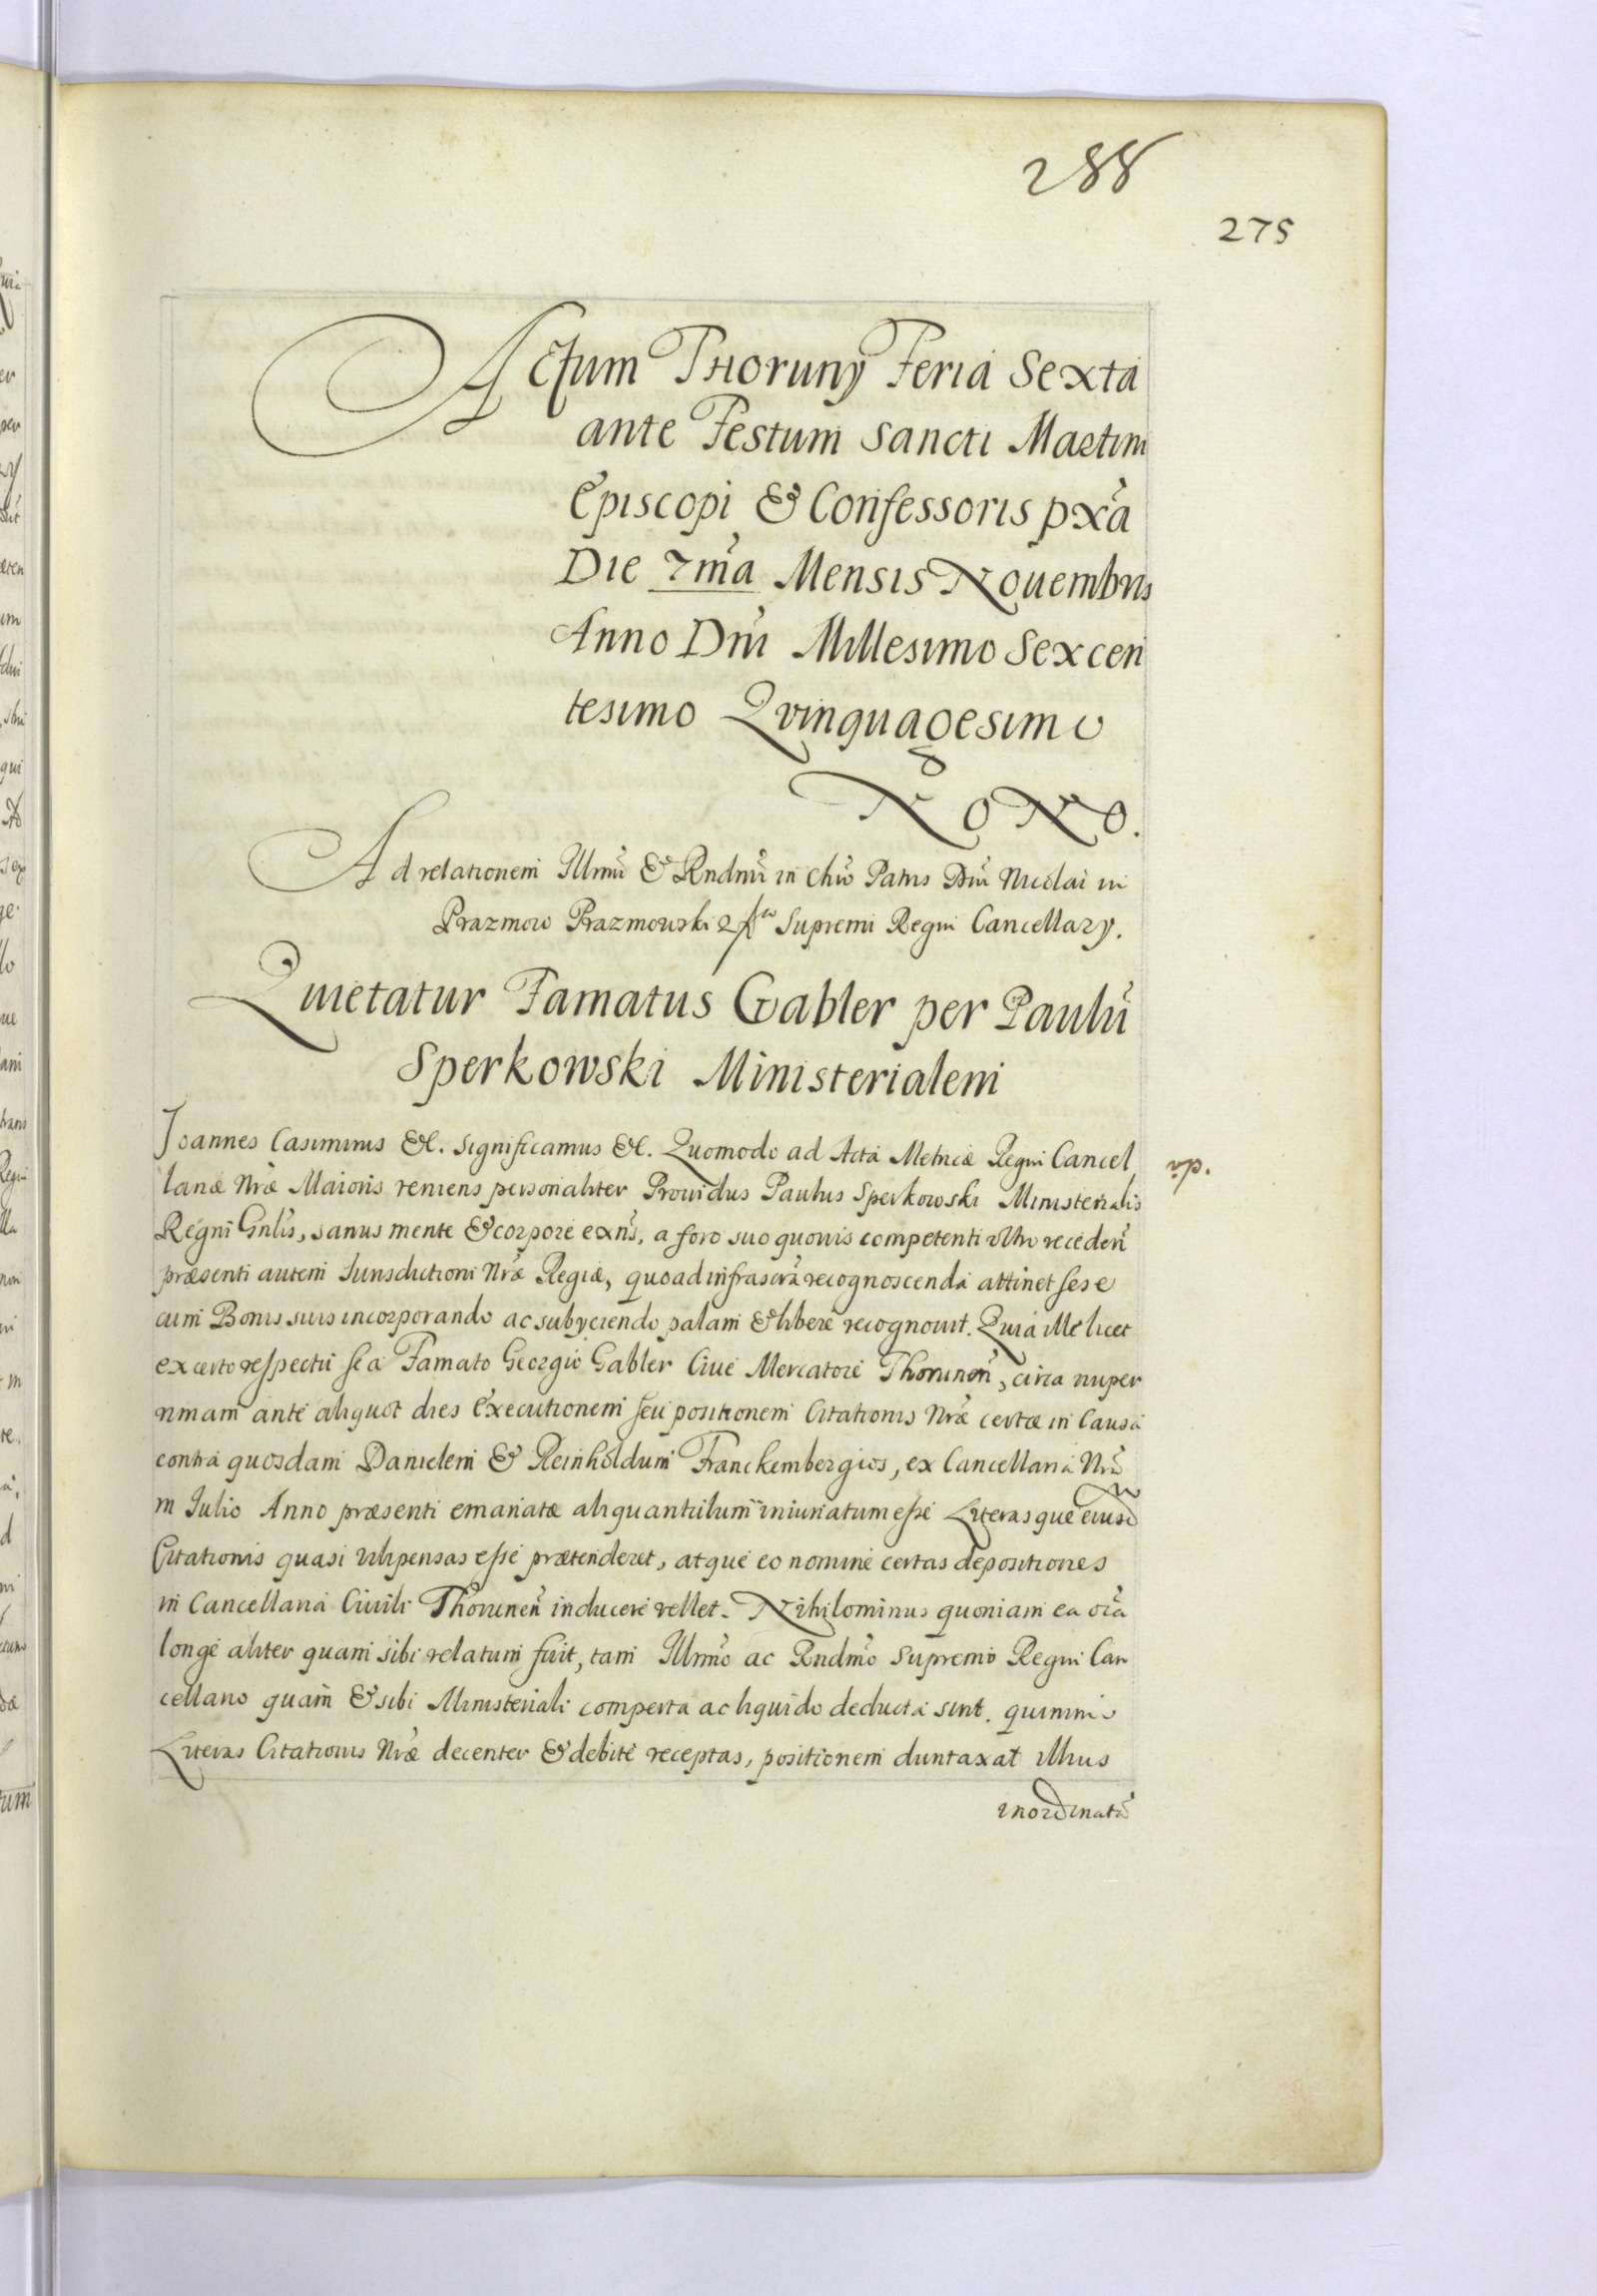 288
275
Actum Thoruny Feria Sexta
ante Festum Sancti Martini
Episcopi & Confessoris pxã
Die 7mã Mensis Nouembris
Anno Dni Millesimo Sexcen
tesimo Qvinquagesimo
Nono.
Ad relationem Illmi & Rndmi in Chro Patris Dni Nicolai in
Prazmow Prazmowski Supremi Regni Cancellary.
Quietatur Famatus Gabler per Paulũ
Sperkowski Ministerialem
Joannes Casimirus &c. Significamus &c. Quomodo ad Acta Metricæ Regni Cancel
lariæ Nræ Maioris veniens personaliter Prouidus Paulus Sperkowski Ministerialis
Regni Gnlis, sanus mente & corpore exñs, a foro suo quouis competenti ultro recedeñ
præsenti autem Jurisdictioni Nræ Regiæ, quoad infrascrã recognoscenda attinet sese
cum Bonis suis incorporando ac subyciendo palam & libere recognouit. Quia ille licet
ex certo respectu se a Famato Georgio Gabler Ciue Mercatore Thorunen̄, circa nuper
rimam ante aliquot dies Executionem seu positionem Citationis Nræ certæ in Causa
contra quosdam Danielem & Reinholdum Franckembergios, ex Cancellaria Nrã
in Julio Anno præsenti emanatæ aliquantulum iniuriatum esse Literasque eiusd
Citationis quasi vilipensas esse prætenderet, atque eo nomine certas depositiones
in Cancellaria Ciuili Thorunen̄ inducere vellet. Nihilominus quoniam ea oĩa
longe aliter quam sibi relatum fuit, tam Illmo ac Rndmo Supremo Regni Can
cellario quam & sibi Ministeriali comperta ac liquido deducta sint. quinimo
Literas Citationis Nræ decenter & debite receptas, positionem duntaxat illius
inordinatã